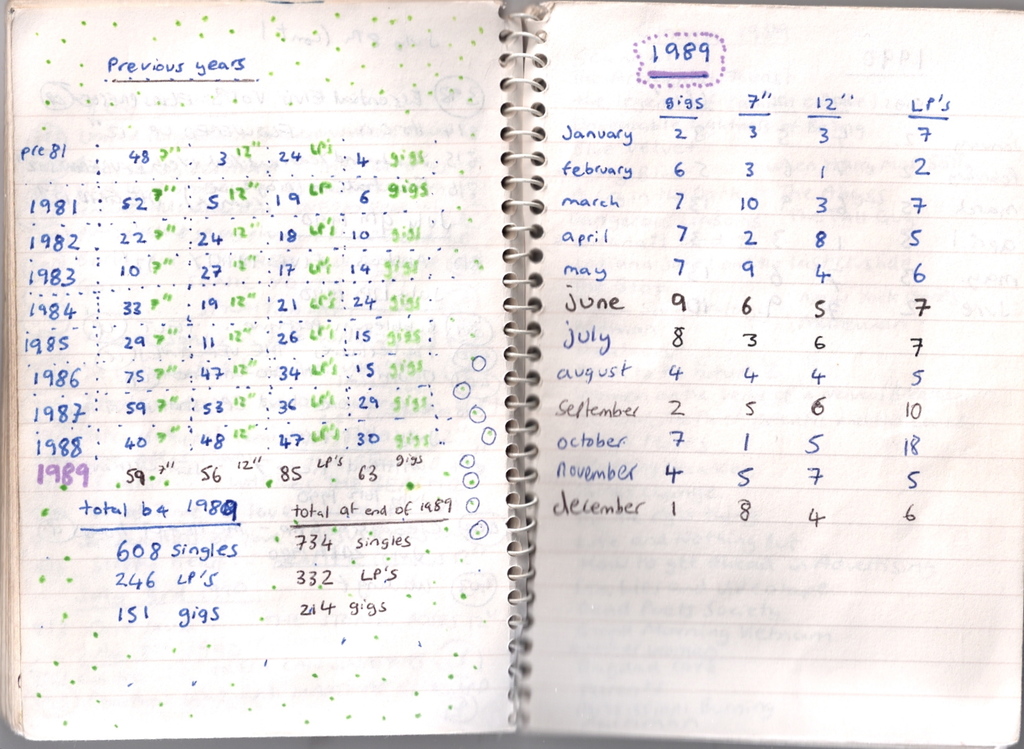 Previous years
pre 81 48 7" 3 12" 24 LP's 4 gigs
1981 52 7" 5 12" 19 LP 6 gigs
1982 22 7" 24 12" 18 LP's 10 gigs
1983 10 7" 27 12" 17 LP's 14 gigs
1984 33 7" 19 12" 21 LP's 24 gigs
1985 29 7" 11 12" 26 LP's 15 gigs
1986 75 7" 47 12" 34 LP's 15 gigs
1987 59 7" 53 12" 36 LP's 29 gigs
1988 40 7" 48 12" 47 LP's 30 gigs
1989 59 7" 56 12" 85 LP's 63 gigs
total b4 1989 total at end of 1989
608 singles 734 singles
246 LP's 332 LP's
151 gigs 214 gigs
1989
gigs 7" 12" LP's
January 2 3 3 7
february 6 3 1 2
march 7 10 3 7
april 7 2 8 5
may 7 9 4 6
june 9 6 5 7
july 8 3 6 7
august 4 4 4 5
September 2 5 6 10
october 7 1 5 18
november 4 5 7 5
december 1 8 4 6